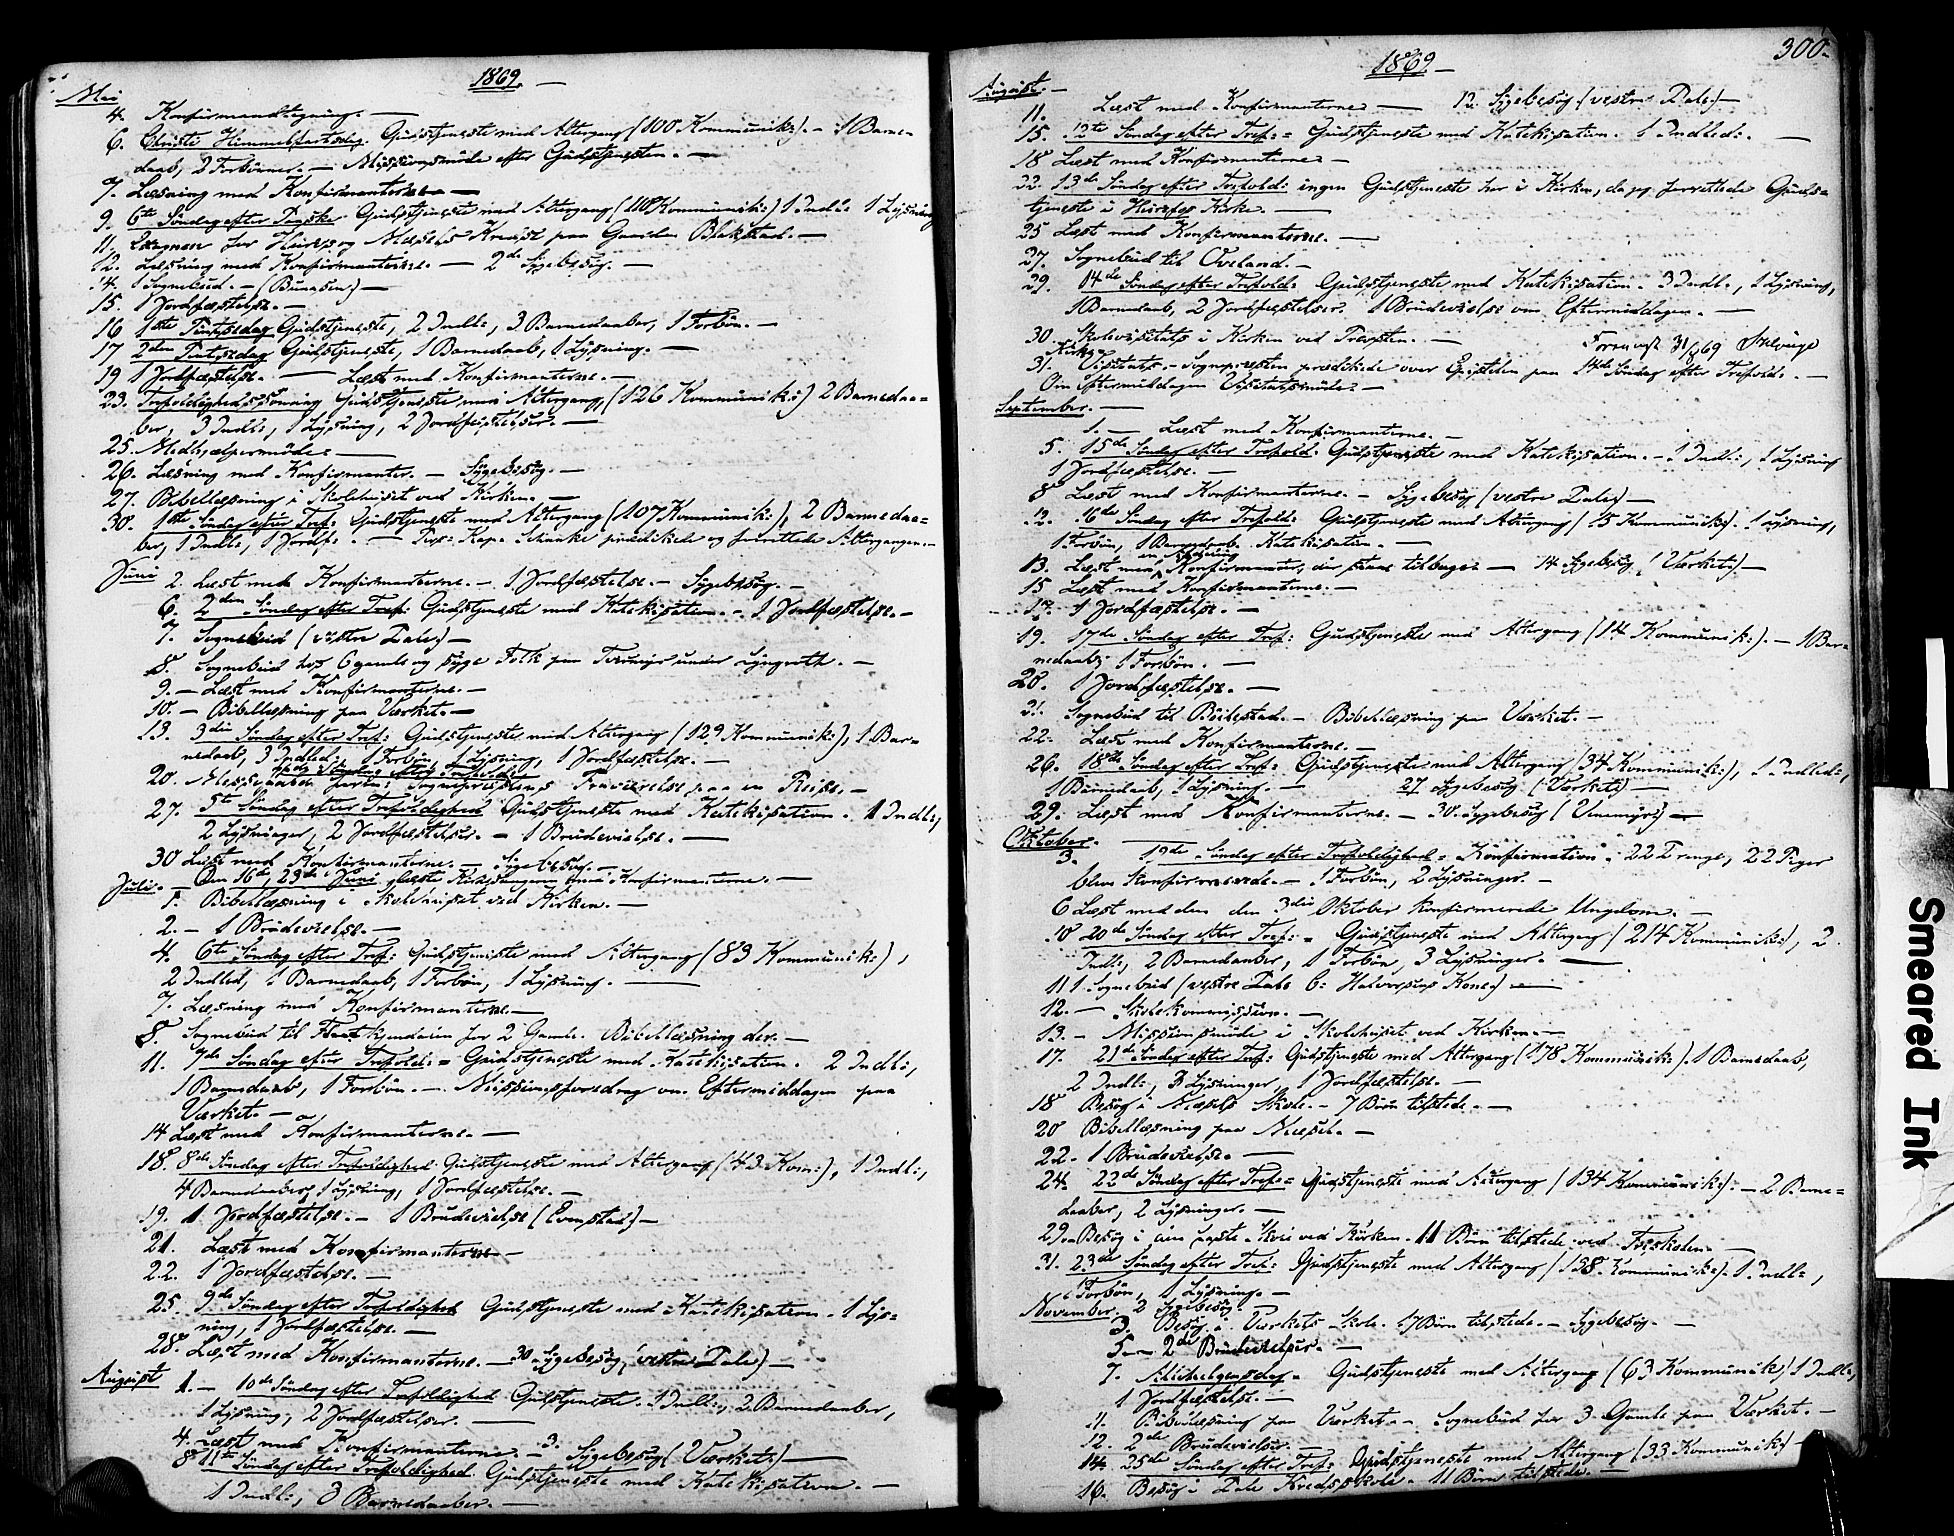 1869.
Mai
4. Konfirmandtegning. —
6. Christi Himmelfartsdag. Gudstjeneste med Altergang (100 Kommunik:). - 1 Barne-
daab, 2 Forbønner. — Missionsmøde efter Gudstjenesten. —
7. Læsning med Konfirmanterne. —
9. 6te Søndag efter Paaske Gudstjeneste med Altergang (110 Kommunik:) 1 Indl: 1 Lysning
11. for og Kreds paa Gaarden Blakstad. —
12. Læsning med Konfirmanterne. — 2de Sygebesøg. —
14. 1 Sognebud. — (Buaasen) —
15. 1 Jordfæstelse. —
16 1ste Pintsedag Gudstjeneste, 2 Indl:, 3 Barnedaaber, 1 Forbøn. —
17 2den Pintsedag Gudstjeneste, 1 Barnedaab, 1 Lysning. —
19 1 Jordfæstelse. — Læst med Konfirmanterne. —
23. Trefoldighedssøndag Gudstjeneste med Altergang (126 Kommunik:) 2 Barnedaa-
ber, 3 Indl:, 1 Lysning, 2 Jordfæstelser. —
25. Medhjælpermøde —
26. Læsning med Konfirmanter. — Sygebesøg. —
27. Bibellæsning i Skolehuset ved Kirken. —
30. 1ste Søndag efter Tref: Gudstjeneste med Altergang (107 Kommunik:), 2 Barnedaa-
ber, 1 Indl:, 1 Jordf: — Kap: Schanke prædikede og forrettede Altergangen. —
Juni
2. Læst med Konfirmanterne. — 1 Jordfæstelse. — Sygebesøg. —
6. 2den Søndag efter Tref: Gudstjeneste med Katekisation. - 1 Jordfæstelse. —
7. Sognebud (vestre Dale) —
8. Sognebud hos 6 gamle og syge Folk paa under Lyngroth. —
9. — Læst med Konfirmanterne. —
10. — Bibellæsning paa Værket. —
13. 3die Søndag efter Tref: Gudstjeneste med Altergang (129 Kommunik:), 1 Bar-
nedaab, 3 Indled:, 1 Forbøn, 1 Lysning, 1 Jordfæstelse. —
4de Søndag efter Trefold:
20. Messefald Sognepræstens Fraværelse paa en Reise. —
27. 5te Søndag efter Trefoldighed Gudstjeneste med Katekisation. 1 Indl:,
2 Lysninger, 2 Jordfæstelser. — 1 Brudevielse. —
30 Læst med Konfirmanterne. — Sygebesøg. —
Den 16de, 23de Juni læste Kirkesangeren med Konfirmanterne. —
Juli. —
1. Bibellæsning i Skolehuset ved Kirken. —
2. — 1 Brudevielse. —
4. 6te Søndag efter Tref: Gudstjeneste med Altergang (83 Kommunik:),
2 Indled, 1 Barnedaab, 1 Forbøn, 1 Lysning. —
7. Læsning med Konfirmanterne. —
8. Sognebud til for 2 Gamle. Bibellæsning der. —
11. 7de Søndag efter Trefold: = Gudstjeneste med Katekisation. 2 Indl:,
1 Barnedaab, 1 Forbøn. — Missionsforedrag om Eftermiddagen paa
Værket. —
14 Læst med Konfirmanterne. —
18. 8de Søndag efter Trefoldighed Gudstjeneste med Altergang (43 Kom:), 1 Indl:,
4 Barnedaaber, 1 Lysning, 1 Jordfæstelse. —
19. 1 Jordfæstelse. — 1 Brudevielse (Evenstad) —
21. Læst med Konfirmanterne —
22. 1 Jordfæstelse. —
25. 9de Søndag efter Trefoldighed Gudstjeneste med Katekisation. 1 Lys-
ning, 1 Jordfæstelse. —
28. Læst med Konfirmanterne. — 30. Sygebesøg (vestre Dale) —
August 1. — 10de Søndag efter Trefoldighed Gudstjeneste. 1 Indl:, 2 Barnedaaber,
1 Lysning, 2 Jordfæstelser. —
4. Læst med Konfirmanterne. — 3. Sygebesøg (Værket) —
8 11te Søndag efter Trefoldighed. Gudstjeneste med Katekisation. —
1 Indl:, 3 Barnedaaber. —
1869
300.
August. —
11. Læst med Konfirmanterne — 12. Sygebesøg (vestre Dale) —
15. 12te Søndag efter Tref: = Gudstjeneste med Katekisation. 1 Indled:. —
18 Læst med Konfirmanterne —
22. 13de Søndag efter Trefold: ingen Gudstjeneste her i Kirken, da jeg forrettede Guds-
tjeneste i Kirke. —
25 Læst med Konfirmanterne. —
27. Sognebud til Øveland. —
29. 14de Søndag efter Trefold: Gudstjeneste med Katekisation. 3 Indl:, 1 Lysning,
1 Barnedaab, 2 Jordfæstelser. 1 Brudevielse om Eftermiddagen. —
30. Skolevisitats i Kirken ved Provsten. — 31/8 69
31. Kirkevisitats. - Sognepræsten prædikede over Epistelen paa 14de Søndag efter Trefold: —
Om Eftermiddagen Visitatsmøde. —
September. —
1. — Læst med Konfirmanterne. —
5. 15de Søndag efter Trefold: Gudstjeneste med Katekisation. - 1 Indl:, 1 Lysning
1 Jordfæstelse. —
8 Læst med Konfirmanterne. — Sygebesøg (vestre Dale) —
12. 16de Søndag efter Trefold: Gudstjeneste med Altergang (15 Kommunik:). 1 Lysning,
1 Forbøn, 1 Barnedaab. Katekisation. —
13. Læst med Konfirmanter, der tilbage — 14 Sygebesøg (Værket) —
15. Læst med Konfirmanterne. —
17. 1 Jordfæstelse. —
19. 17de Søndag efter Tref: Gudstjeneste med Altergang (14 Kommunik:). — 1 Bar-
nedaab, 1 Forbøn. —
20. 1 Jordfæstelse. —
21. Sognebud til Böilestad. — Bibellæsning paa Værket. —
22. Læst med Konfirmanterne. —
26. 18de Søndag efter Tref: Gudstjeneste med Altergang (34 Kommunik:), 1 Indled:,
1 Barnedaab, 1 Lysning. — 27. Sygebesøg (Værket) —
29. Læst med Konfirmanterne. — 30. Sygebesøg (Venemyr) —
Oktober. —
3. 19de Søndag efter Trefoldighed = Konfirmation. 22 Drenge, 22 Piger
bleve konfirmerede. — 1 Forbøn, 2 Lysninger. —
6 Læst med den den 3die Oktober konfirmerede Ungdom. —
10 20de Søndag efter Tref: = Gudstjeneste med Altergang (214 Kommunik:), 2
Indl:, 2 Barnedaaber, 1 Forbøn, 3 Lysninger. —
11 1 Sognebud (vestre Dale Halvorsens Kone) —
12. — Skolekommission. —
13. — Missionsmøde i Skolehuset ved Kirken. —
17. 21de Søndag efter Tref: Gudstjeneste med Altergang (178 Kommunik:). 1 Barnedaab,
2 Indl:, 3 Lysninger, 1 Jordfæstelse. —
18 Besøg i Næsets Skole. — 7 Børn tilstede. —
20 Bibellæsning paa Næset. —
22. 1 Brudevielse. —
24. 22de Søndag efter Tref: = Gudstjeneste med Altergang (134 Kommunik:). — 2 Barne-
daaber, 2 Lysninger. —
29. Besøg i den faste Skole ved Kirken. 11 Børn tilstede ved —
31. 23de Søndag efter Tref: Gudstjeneste med Altergang (138 Kommunik:). 1 Indl:,
1 Forbøn, 1 Lysning. —
November. 2 Sygebesøg. —
3. Besøg i Værkets Skole. 17 Børn tilstede. — Sygebesøg. —
5. — 2de Brudevielser. —
7. Allehelgensdag. Gudstjeneste med Altergang (63 Kommunik) 1 Indl:,
1 Jordfæstelse. —
11. Bibellæsning paa Værket. — Sognebud for 3 Gamle paa Værket. —
12. 2de Brudevielser. —
14. 25de Søndag efter Tref: Gudstjeneste med Altergang (33 Kommunik) —
16. Besøg i Dale Kredsskole. — 11 Børn tilstede. —
Smeared Ink